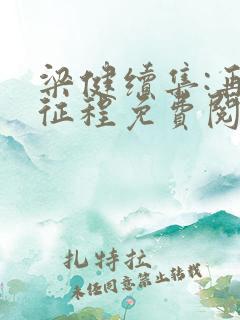 梁健续集:再
征程免费阅
扎特拉
未经同意禁止转载